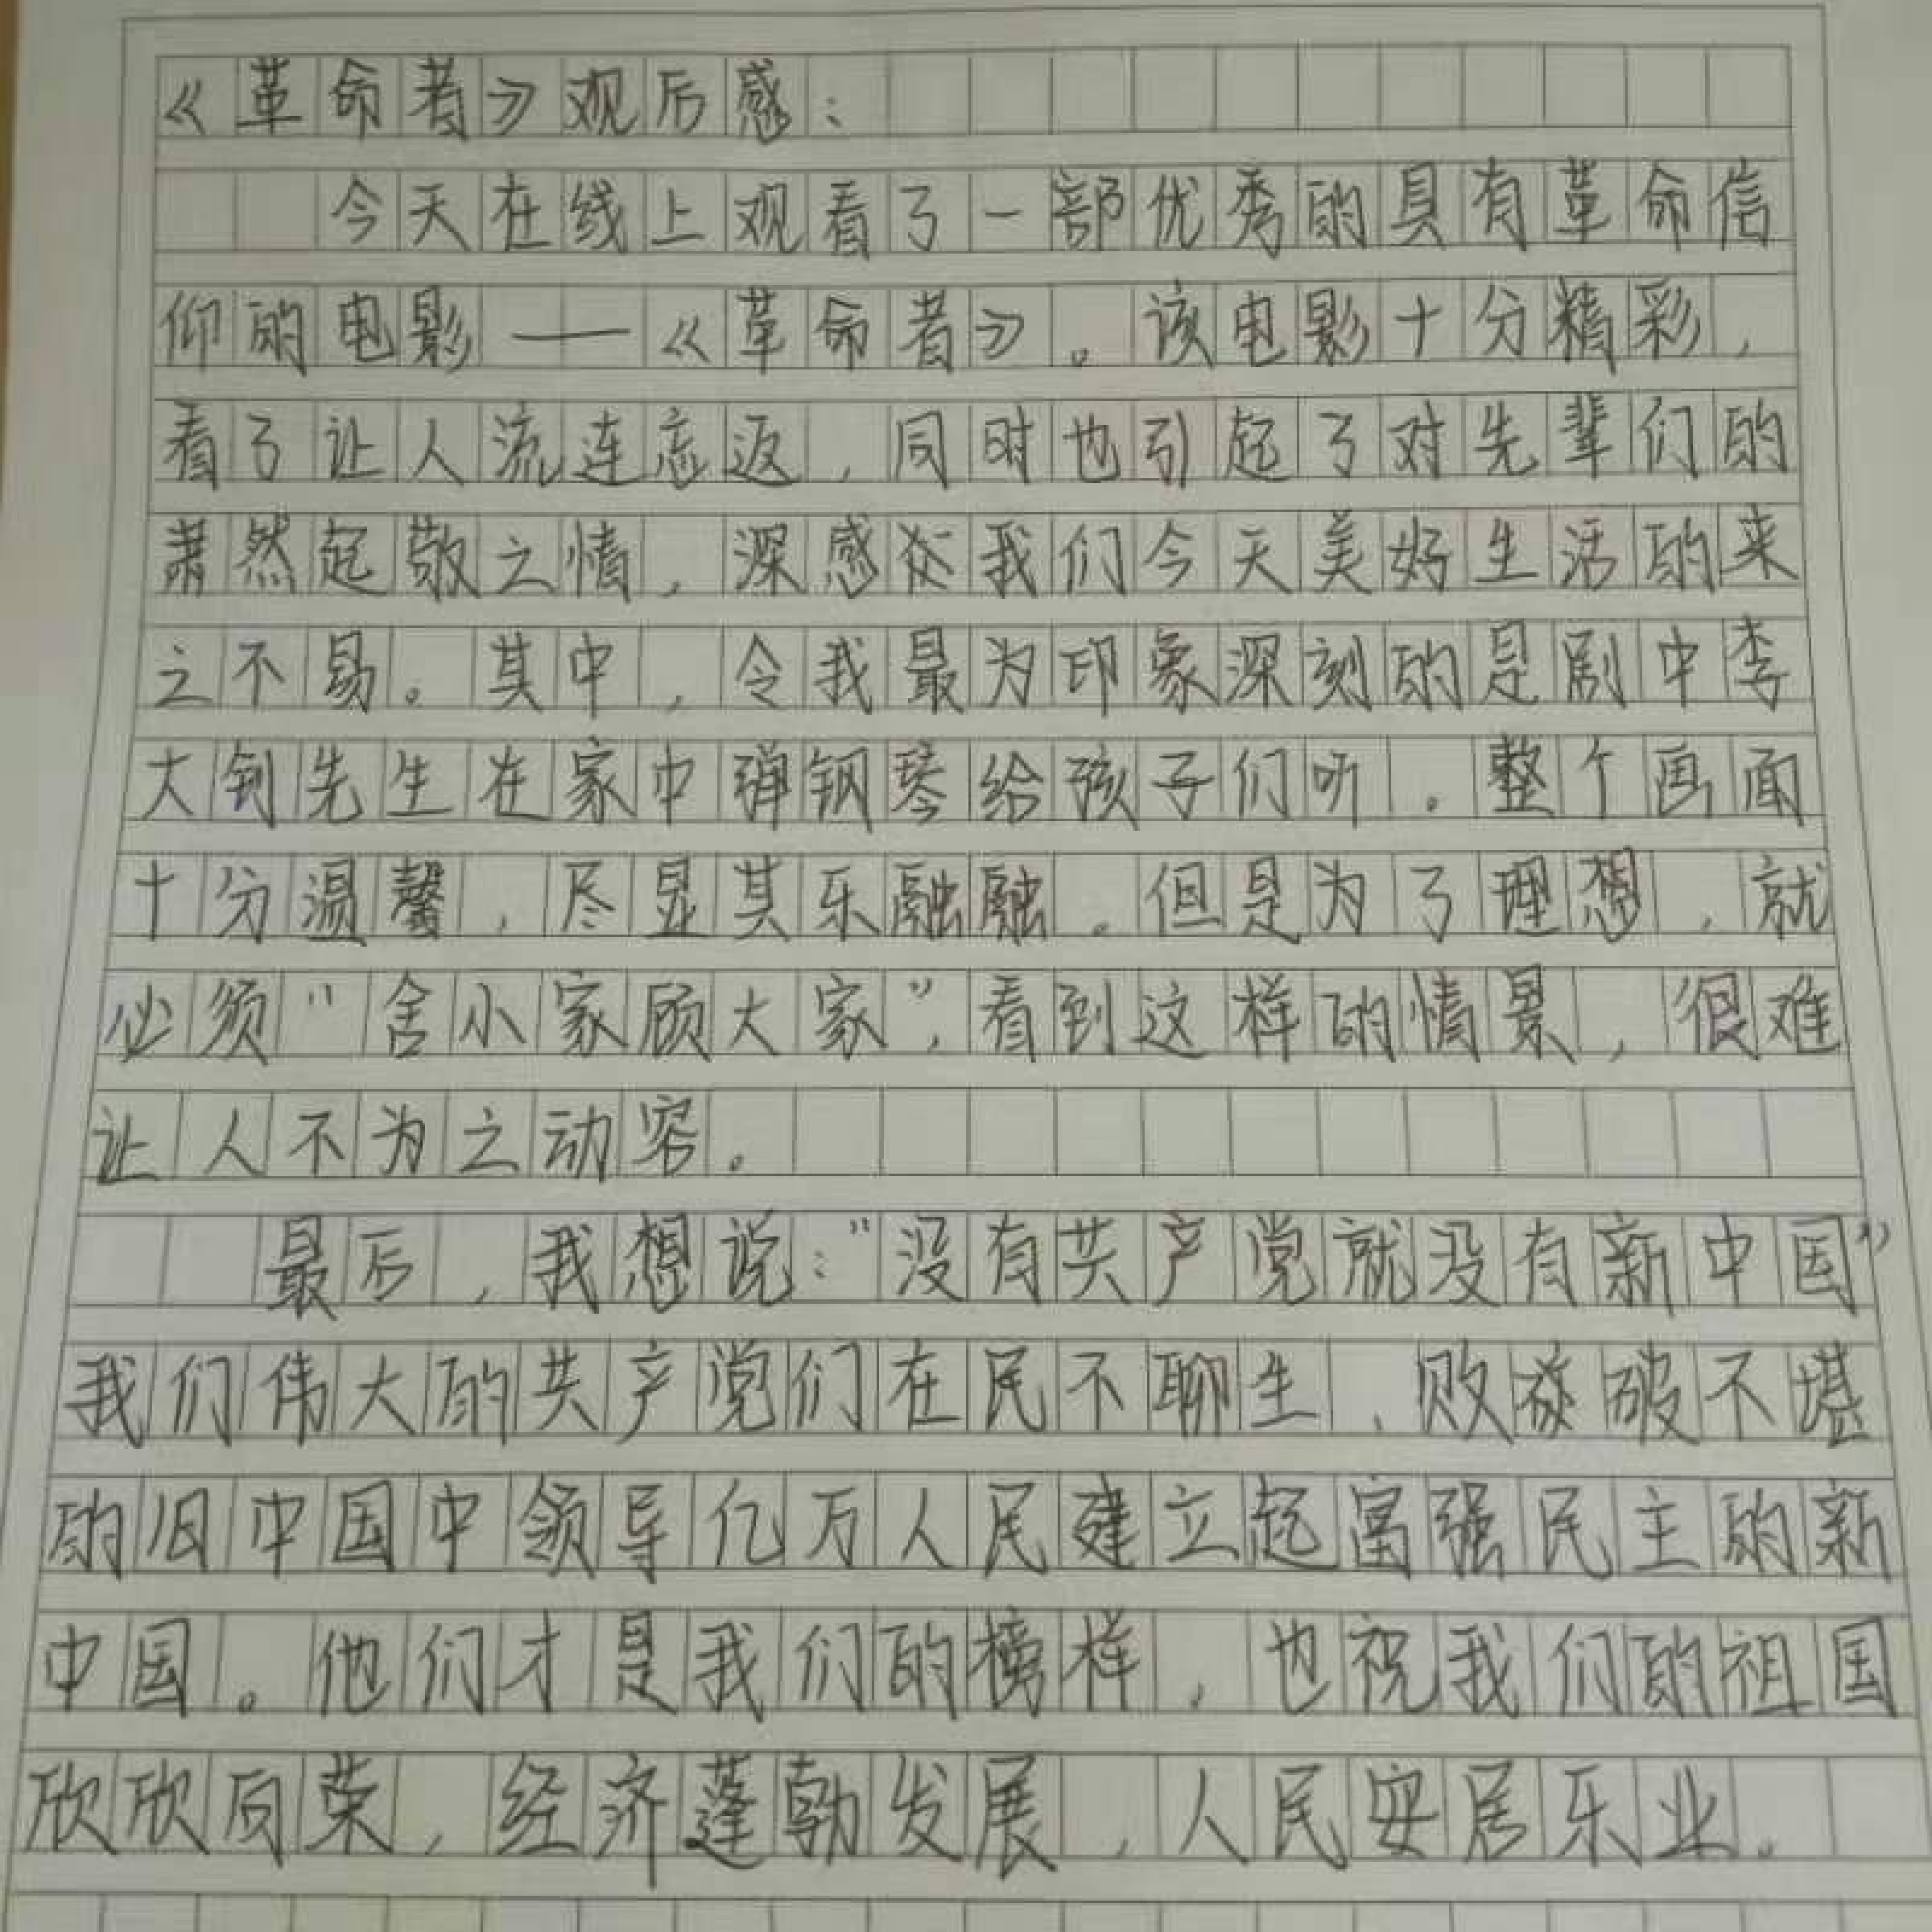 《革命者》观后感：
今天在线上观看了一部优秀的具有革命信
仰的电影——《革命者》。该电影十分精彩，
看了让人流连忘返，同时也引起了对先辈们的
萧然起敬之情，深感我们今天美好生活的来
之不易。其中，令我最为印象深刻的是剧中李
大钊先生在家中弹钢琴给孩子们听。整个画面
十分温馨，尽显其乐融融。但是为了理想，就
必须"舍小家顾大家"，看到这样的情景，很难
让人不为之动容。
最后，我想说："没有共产党就没有新中国"
我们伟大的共产党们在民不聊生、败破不堪
的旧中国中领导亿万人民建立起富强民主的新
中国。他们才是我们的榜样，也祝我们的祖国
欣欣向荣，经济蓬勃发展，人民安居乐业。